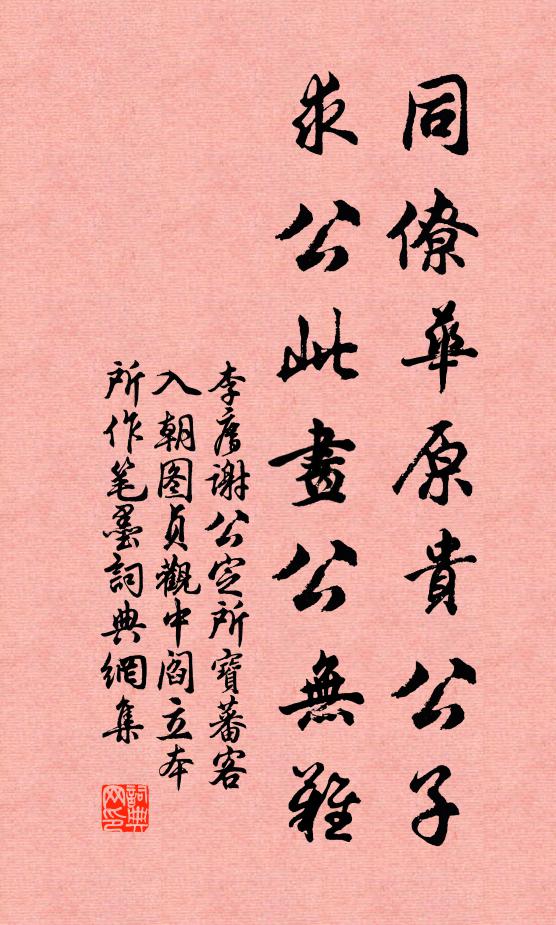 同僚華原貴公子
求公此畫公無難
李廌謝公定所寶蕃客
入朝图贞觀中阎立本
所作笔墨詞典網集
詞典网印